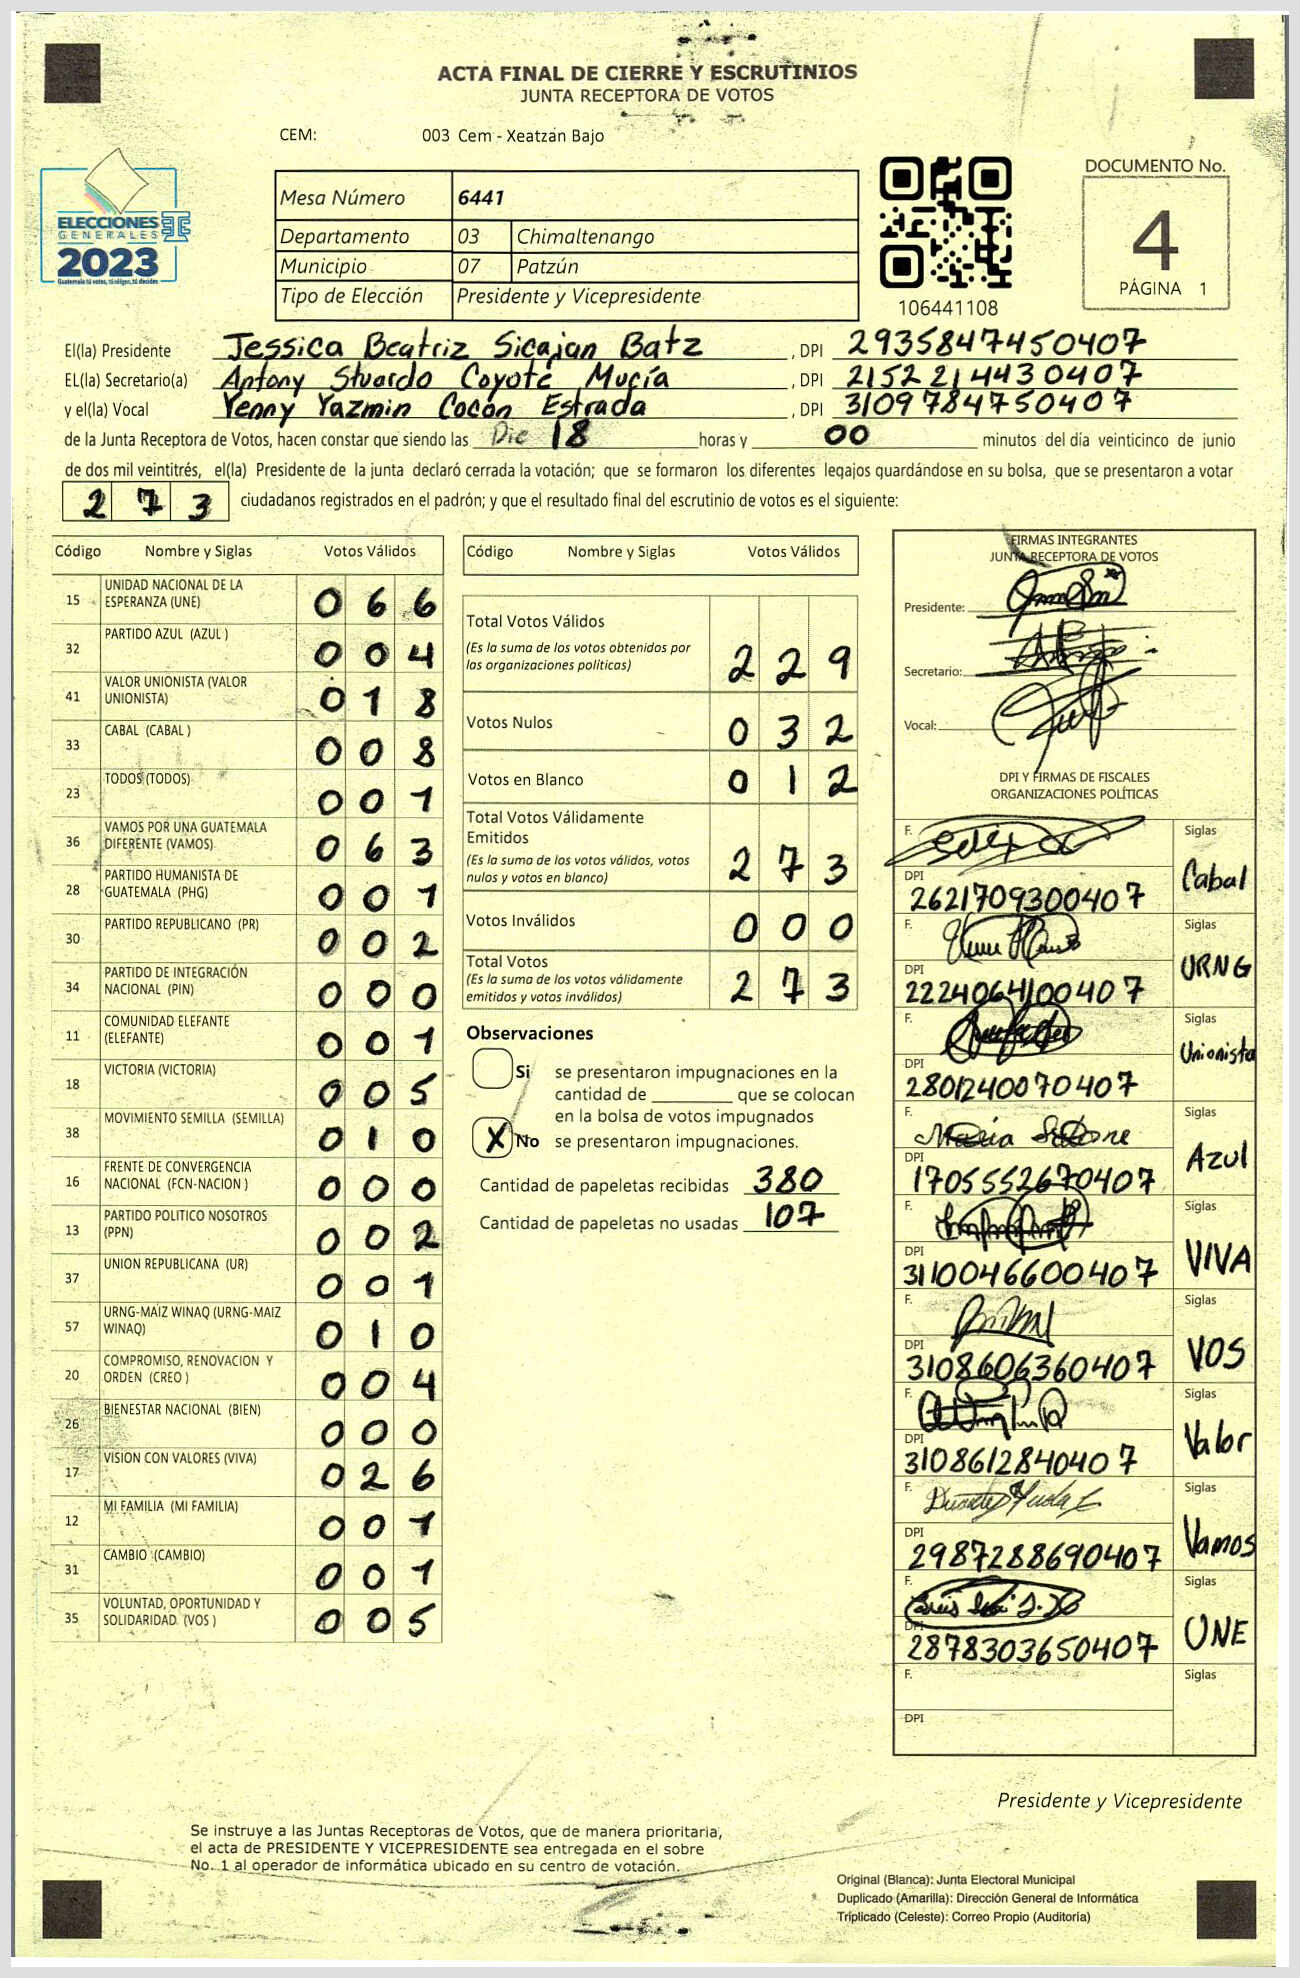 ACTA FINAL DE CIERRE Y ESCRUTINIOS
JUNTA RECEPTORA DE VOTOS
CEM: 003 Cem - Xeatzan Bajo
ELECCIONES
GENERALES
2023
Guatemala tú votas, tú eliges, tú decides
Mesa Número 6441
Departamento 03 Chimaltenango
Municipio 07 Patzún
Tipo de Elección Presidente y Vicepresidente
106441108
DOCUMENTO No.
4
PÁGINA 1
El(la) Presidente Jessica Beatriz Sicajan Batz , DPI 2935847450407
EL(la) Secretario(a) Antony Stuardo Coyoté Mucía , DPI 2152214430407
y el(la) Vocal Yenny Yazmin Cocón Estrada , DPI 3109784750407
de la Junta Receptora de Votos, hacen constar que siendo las Die 18 horas y 00 minutos del día veinticinco de junio
de dos mil veintitrés, el(la) Presidente de la junta declaró cerrada la votación; que se formaron los diferentes legajos guardándose en su bolsa, que se presentaron a votar
2 7 3 ciudadanos registrados en el padrón; y que el resultado final del escrutinio de votos es el siguiente:
Código Nombre y Siglas Votos Válidos
15 UNIDAD NACIONAL DE LA ESPERANZA (UNE) 0 6 6
32 PARTIDO AZUL (AZUL ) 0 0 4
41 VALOR UNIONISTA (VALOR UNIONISTA) 0 1 8
33 CABAL (CABAL ) 0 0 8
23 TODOS (TODOS) 0 0 1
36 VAMOS POR UNA GUATEMALA DIFERENTE (VAMOS) 0 6 3
28 PARTIDO HUMANISTA DE GUATEMALA (PHG) 0 0 1
30 PARTIDO REPUBLICANO (PR) 0 0 2
34 PARTIDO DE INTEGRACIÓN NACIONAL (PIN) 0 0 0
11 COMUNIDAD ELEFANTE (ELEFANTE) 0 0 1
18 VICTORIA (VICTORIA) 0 0 5
38 MOVIMIENTO SEMILLA (SEMILLA) 0 1 0
16 FRENTE DE CONVERGENCIA NACIONAL (FCN-NACION ) 0 0 0
13 PARTIDO POLITICO NOSOTROS (PPN) 0 0 2
37 UNION REPUBLICANA (UR) 0 0 1
57 URNG-MAIZ WINAQ (URNG-MAIZ WINAQ) 0 1 0
20 COMPROMISO, RENOVACION Y ORDEN (CREO ) 0 0 4
26 BIENESTAR NACIONAL (BIEN) 0 0 0
17 VISION CON VALORES (VIVA) 0 2 6
12 MI FAMILIA (MI FAMILIA) 0 0 1
31 CAMBIO (CAMBIO) 0 0 1
35 VOLUNTAD, OPORTUNIDAD Y SOLIDARIDAD (VOS ) 0 0 5
Código Nombre y Siglas Votos Válidos
Total Votos Válidos
(Es la suma de los votos obtenidos por
las organizaciones políticas) 2 2 9
Votos Nulos 0 3 2
Votos en Blanco 0 1 2
Total Votos Válidamente
Emitidos
(Es la suma de los votos válidos, votos
nulos y votos en blanco) 2 7 3
Votos Inválidos 0 0 0
Total Votos
(Es la suma de los votos válidamente
emitidos y votos inválidos) 2 7 3
Observaciones
Si se presentaron impugnaciones en la
cantidad de ________ que se colocan
en la bolsa de votos impugnados
X No se presentaron impugnaciones.
Cantidad de papeletas recibidas 380
Cantidad de papeletas no usadas 107
FIRMAS INTEGRANTES
JUNTA RECEPTORA DE VOTOS
Presidente:
Secretario:
Vocal:
DPI Y FIRMAS DE FISCALES
ORGANIZACIONES POLÍTICAS
F. Siglas
DPI 2621709300407 Cabal
F. Siglas
DPI 2224064100407 URNG
F. Siglas
DPI 2801240070407 Unionista
F. Siglas
DPI 1705552670407 Azul
F. Siglas
DPI 3110046600407 VIVA
F. Siglas
DPI 3108606360407 VOS
F. Siglas
DPI 3108612840407 Valor
F. Siglas
DPI 2987288690407 Vamos
F. Siglas
DPI 2878303650407 UNE
F. Siglas
DPI
Presidente y Vicepresidente
Se instruye a las Juntas Receptoras de Votos, que de manera prioritaria,
el acta de PRESIDENTE Y VICEPRESIDENTE sea entregada en el sobre
No. 1 al operador de informática ubicado en su centro de votación.
Original (Blanca): Junta Electoral Municipal
Duplicado (Amarilla): Dirección General de Informática
Triplicado (Celeste): Correo Propio (Auditoría)